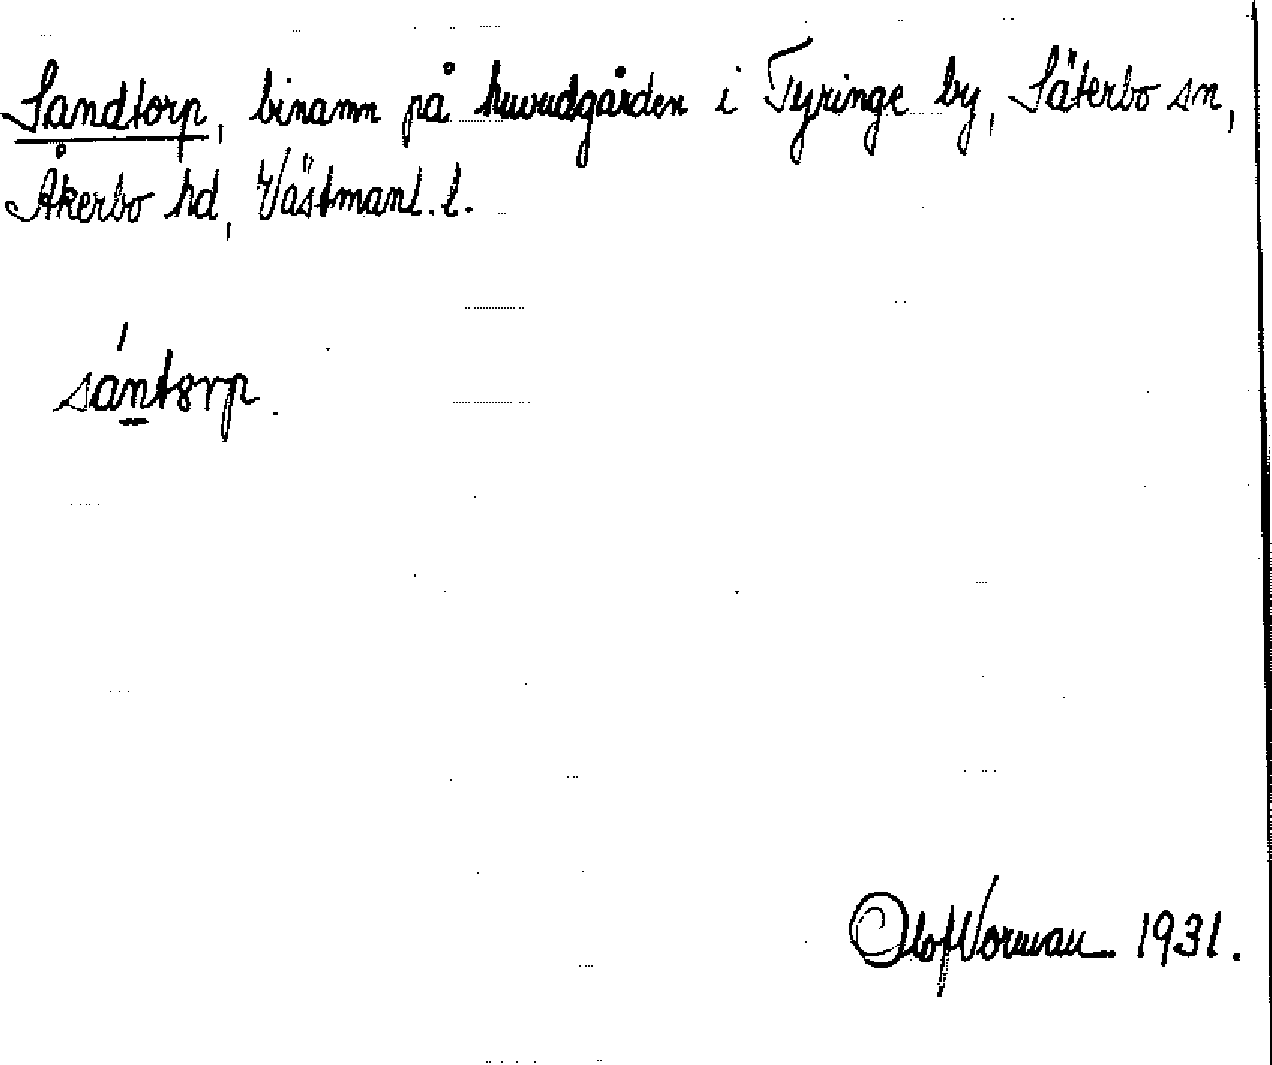 Sandtorp, binamn på huvudgården i Tyringe by, Säterbo sn,
Åkerbo hd, Västmanl. l.
sántorp.
Olof Norman 1931.